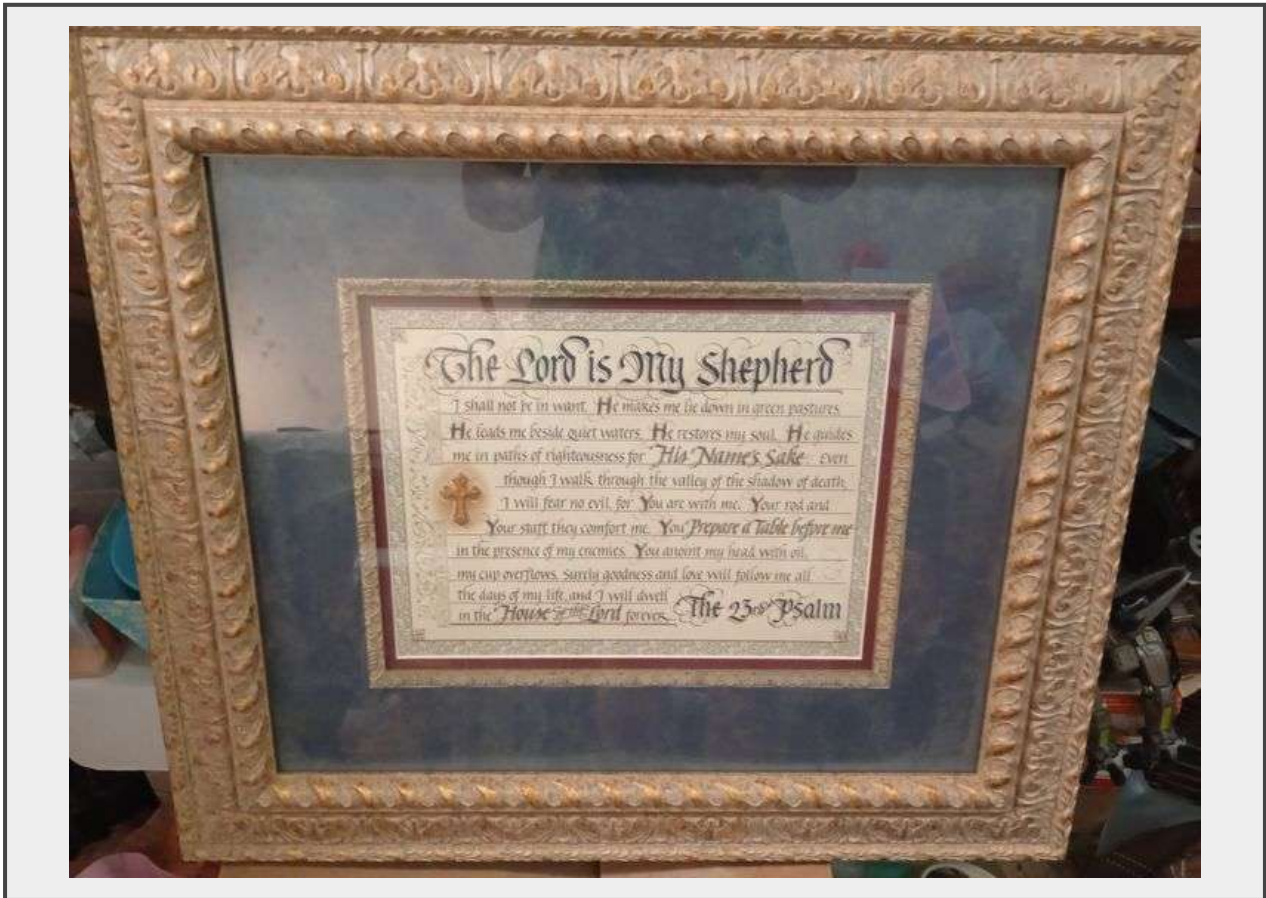 The Lord is My Shepherd
I shall not be in want. He makes me lie down in green pastures.
He leads me beside quiet waters. He restores my soul. He guides
me in paths of righteousness for His Name's Sake. Even
though I walk through the valley of the shadow of death,
I will fear no evil, for You are with me. Your rod and
Your staff they comfort me. You Prepare a Table before me
in the presence of my enemies. You anoint my head with oil,
my cup overflows. Surely goodness and love will follow me all
the days of my life, and I will dwell
in the House of the Lord forever.
The 23rd Psalm